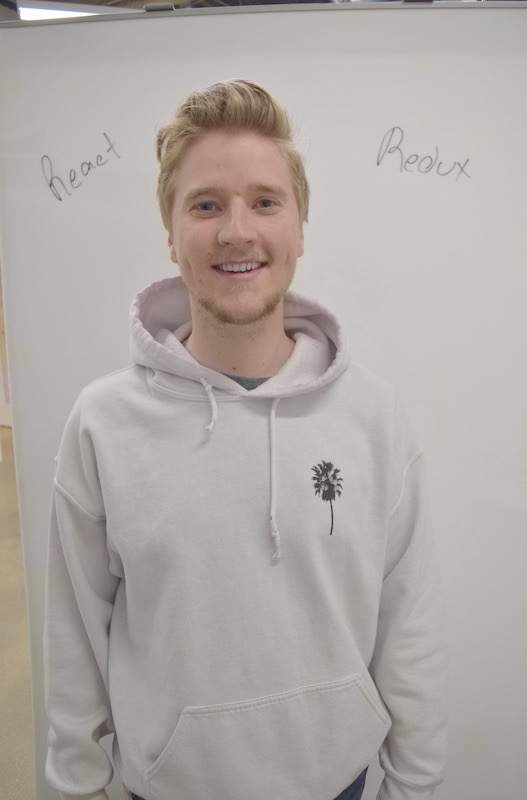 React
Redux